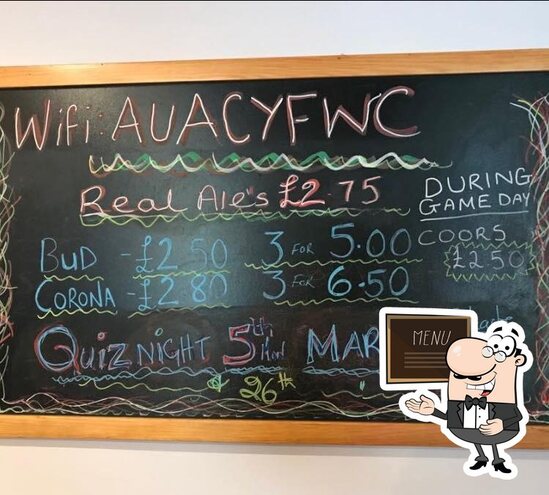 Wifi: AUACYFWC
Real Ale's £2.75
DURING
GAME DAY
COORS
£2.50
BUD - £2.50 3 FOR 5.00
CORONA - £2.80 3 FOR 6.50
QUIZ NIGHT 5th MAR
& 26th
MENU